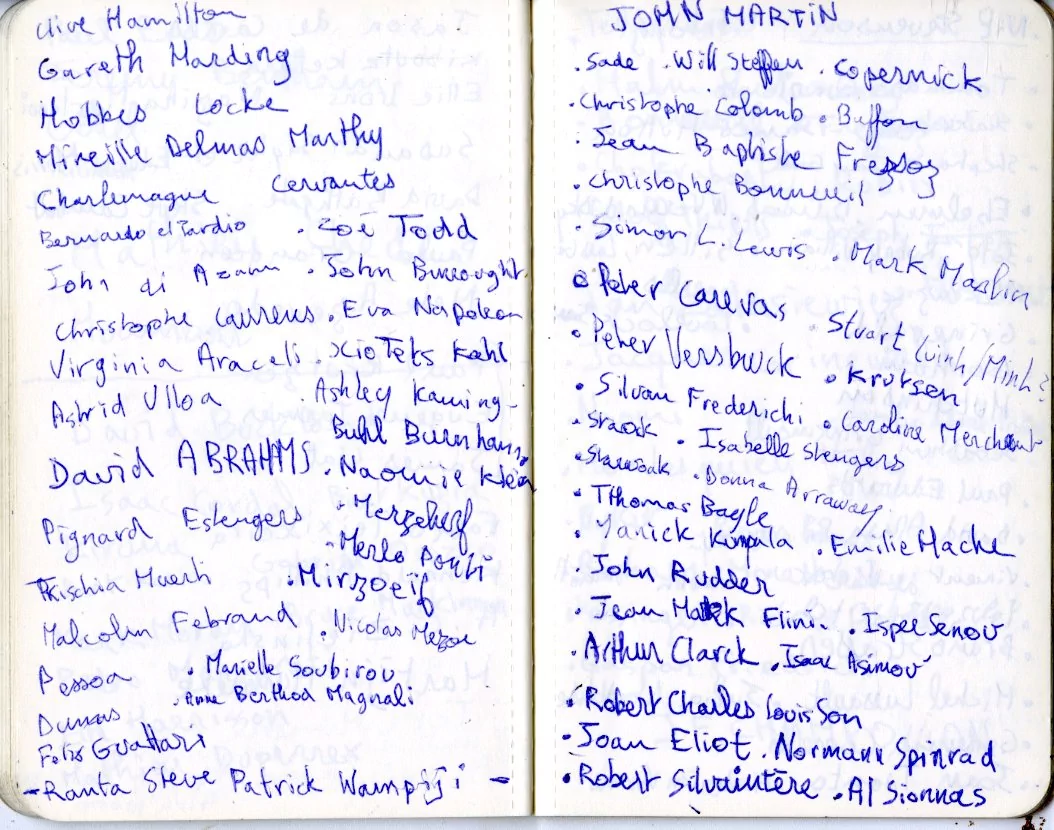 Clive Hamilton
Gareth Harding
Hobbes Locke
Mireille Delmas Marthy
Charlemagne Cervantes
Bernardo el Tardio . Zoë Todd
John di Azann . John Burrought
Christophe Laurens . Eva Napoleon
Virginia Araceli . Xio Teks Kahl
Astrid Ulloa . Ashley Kaming-
Buhl Burnhamn
David ABRAHMS . Naomie Klein
Pignard Estengers . Merzehef
. Merlo Ponti
Frischia Maesh . Mirzoeif
Malcolm Febrand . Nicolas Mezoe
Pessoa . Marielle Soubirou
. Anne Berthod Magnali
Dumas
Felix Guattari
- Ranta Steve Patrick Wampiji -
JOHN MARTIN
. Sade . Will Steffen . Copernick
. Christophe Colomb . Buffon
. Jean Baptishe Fressoz
. Christophe Bonneuil
. Simon L. Lewis . Mark Maslin
. Peter Carevas
. Stuart Luinh/Minh?
. Peter Versbuck . Krutsen
. Silvan Frederichi . Caroline Merchant
. Staosk . Isabelle Stengers
. Starwoak . Donna Arraway
. Tthomas Bayle
. Yanick Kumpala . Emilie Hache
. John Rudder
. Jean Mark Flini . Ispee Senov
. Arthur Clarck . Isaac Asimov
. Robert Charles Louis Son
. Joan Eliot . Normann Spinrad
. Robert Silvaintere . Al Sionnas